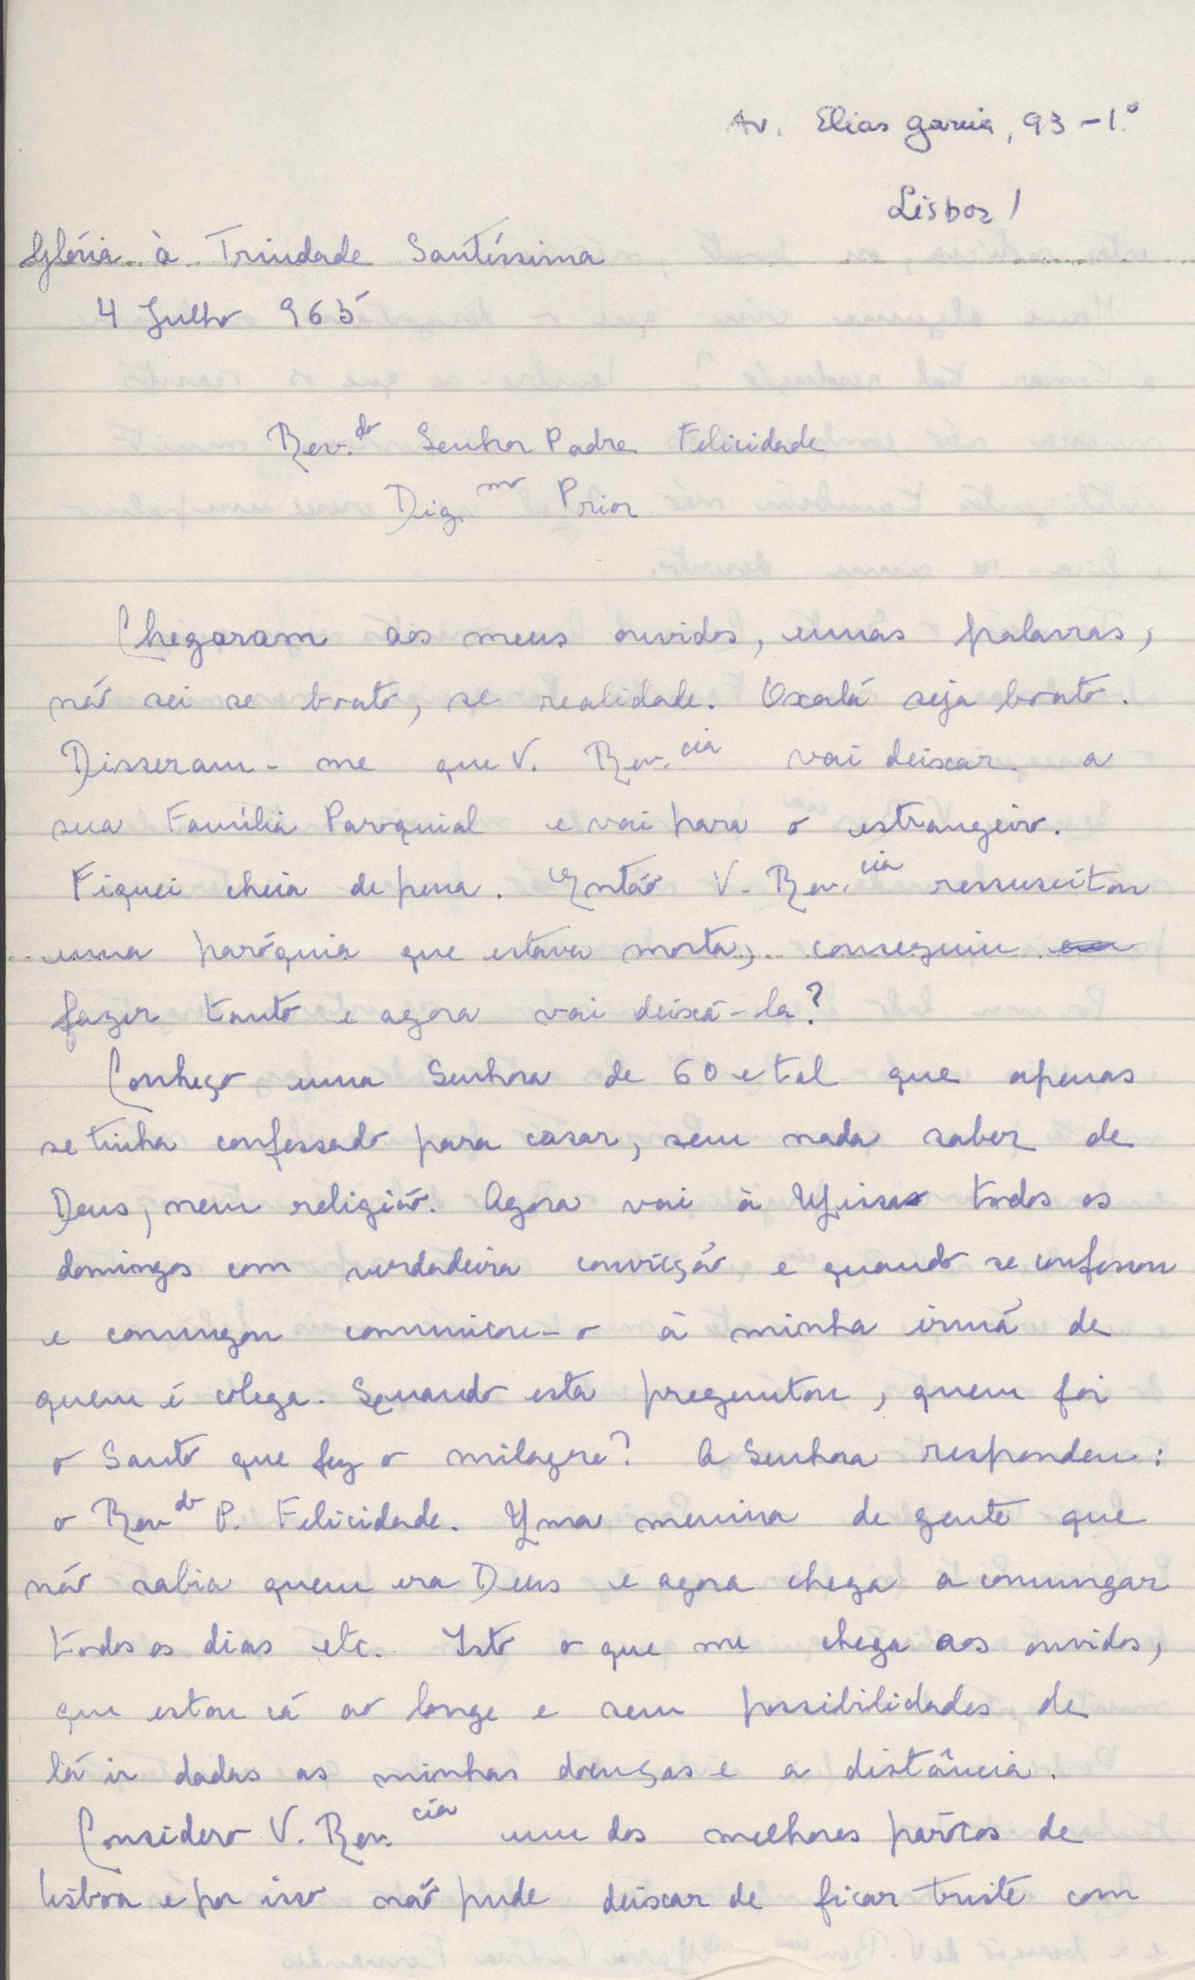 Av. Elias Garcia, 93-1.º
Lisboa 1
Glória à Trindade Santíssima
4 Julho 965
Rev.do Senhor Padre Felicidade
Dig.mo Prior
Chegaram aos meus ouvidos, umas palavras,
não sei se boato, se realidade. Oxalá seja boato.
Disseram-me que V. Rev.cia vai deixar a
sua Família Paroquial e vai para o estrangeiro.
Fiquei cheia de pena. Então V. Rev.cia ressuscitou
uma paróquia que estava morta, conseguiu
fazer tanto e agora vai deixá-la?
Conheço uma Senhora de 60 e tal que apenas
se tinha confessado para casar, sem nada saber de
Deus, nem religião. Agora vai à Missa todos os
domingos com verdadeira convicção e quando se confessou
e comungou comunicou-o à minha irmã de
quem é colega. Quando esta preguntou, quem foi
o Santo que fez o milagre? A Senhora respondeu:
o Rev.do P. Felicidade. Uma menina de gente que
não sabia quem era Deus e agora chega a comungar
todos os dias etc. Isto o que me chega aos ouvidos,
que estou cá ao longe e sem possibilidades de
lá ir dadas as minhas doenças e a distância.
Considero V. Rev.cia um dos melhores párocos de
Lisboa e por isso não pude deixar de ficar triste com